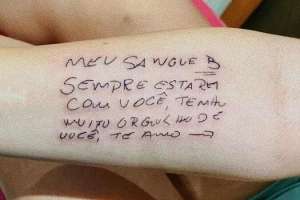 MEU SANGUE B
SEMPRE ESTARÁ
COM VOCÊ, TENHO
MUITO ORGULHO DE
VOCÊ, TE AMO →